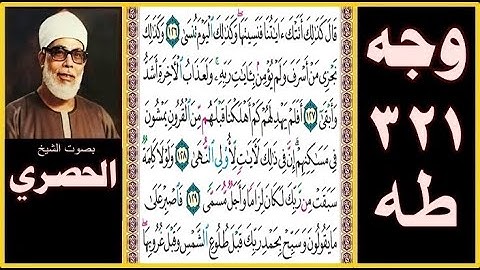 وجه
٣٢١
طه
قَالَ كَذَٰلِكَ أَتَتْكَ ءَايَٰتُنَا فَنَسِيتَهَا وَكَذَٰلِكَ ٱلْيَوْمَ تُنسَىٰ ١٢٦ وَكَذَٰلِكَ
نَجْزِى مَنْ أَسْرَفَ وَلَمْ يُؤْمِنۢ بِـَٔايَٰتِ رَبِّهِۦ وَلَعَذَابُ ٱلْءَاخِرَةِ أَشَدُّ
وَأَبْقَىٰٓ ١٢٧ أَفَلَمْ يَهْدِ لَهُمْ كَمْ أَهْلَكْنَا قَبْلَهُم مِّنَ ٱلْقُرُونِ يَمْشُونَ
فِى مَسَٰكِنِهِمْ إِنَّ فِى ذَٰلِكَ لَءَايَٰتٍ لِّأُو۟لِى ٱلنُّهَىٰ ١٢٨ وَلَوْلَا كَلِمَةٌ
سَبَقَتْ مِن رَّبِّكَ لَكَانَ لِزَامًا وَأَجَلٌ مُّسَمًّى ١٢٩ فَٱصْبِرْ عَلَىٰ
مَا يَقُولُونَ وَسَبِّحْ بِحَمْدِ رَبِّكَ قَبْلَ طُلُوعِ ٱلشَّمْسِ وَقَبْلَ غُرُوبِهَا
بصوت الشيخ
الحصري